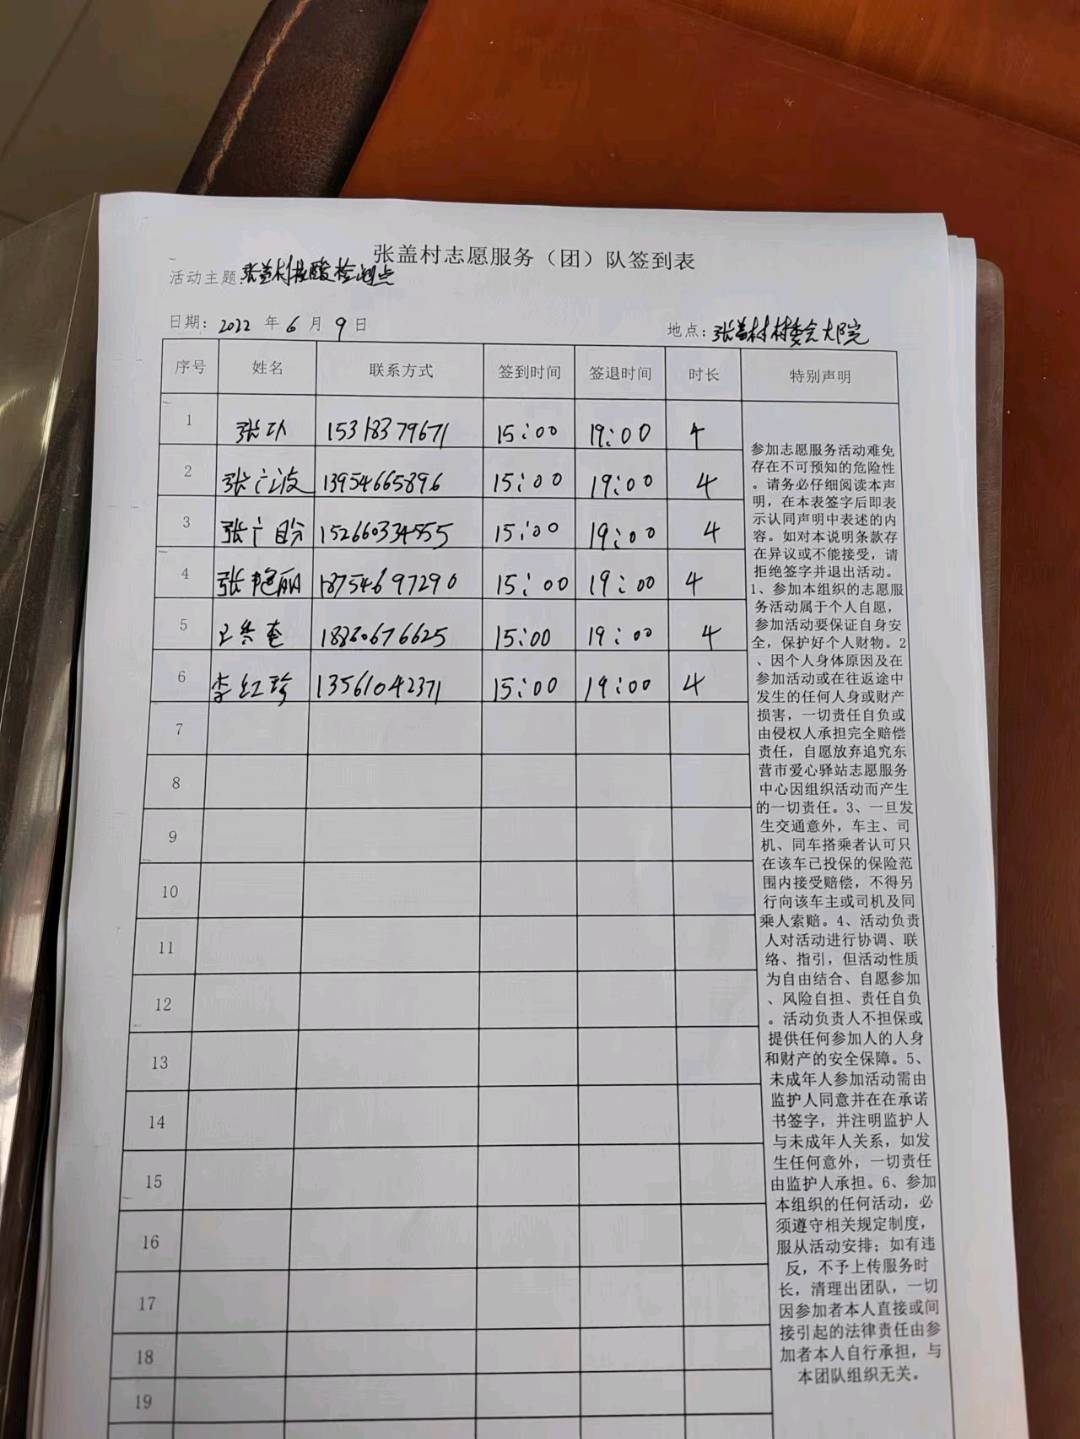 张盖村志愿服务（团）队签到表
活动主题:张盖村核酸检测点
日期: 2022 年 6 月 9 日 地点: 张盖村村委会大院
序号 姓名 联系方式 签到时间 签退时间 时长 特别声明
1 张功 15318379671 15:00 19:00 4
2 张广波 13954665896 15:00 19:00 4
3 张广盼 152660334555 15:00 19:00 4
4 张艳丽 18754697290 15:00 19:00 4
5 15:00 19:00 4
6 李红珍 13561042371 15:00 19:00 4
7
8
9
10
11
12
13
14
15
16
17
18
19
参加志愿服务活动难免
存在不可预知的危险性
。请务必仔细阅读本声
明，在本表签字后即表
示认同声明中表述的内
容。如对本说明条款存
在异议或不能接受，请
拒绝签字并退出活动。
1、参加本组织的志愿服
务活动属于个人自愿，
参加活动要保证自身安
全，保护好个人财物。2
、因个人身体原因及在
参加活动或在往返途中
发生的任何人身或财产
损害，一切责任自负或
由侵权人承担完全赔偿
责任，自愿放弃追究东
营市爱心驿站志愿服务
中心因组织活动而产生
的一切责任。3、一旦发
生交通意外，车主、司
机、同车搭乘者认可只
在该车已投保的保险范
围内接受赔偿，不得另
行向该车主或司机及同
乘人索赔。4、活动负责
人对活动进行协调、联
络、指引，但活动性质
为自由结合、自愿参加
、风险自担、责任自负
。活动负责人不担保或
提供任何参加人的人身
和财产的安全保障。5、
未成年人参加活动需由
监护人同意并在在承诺
书签字，并注明监护人
与未成年人关系，如发
生任何意外，一切责任
由监护人承担。6、参加
本组织的任何活动，必
须遵守相关规定制度，
服从活动安排；如有违
反，不予上传服务时
长，清理出团队，一切
因参加者本人直接或间
接引起的法律责任由参
加者本人自行承担，与
本团队组织无关。